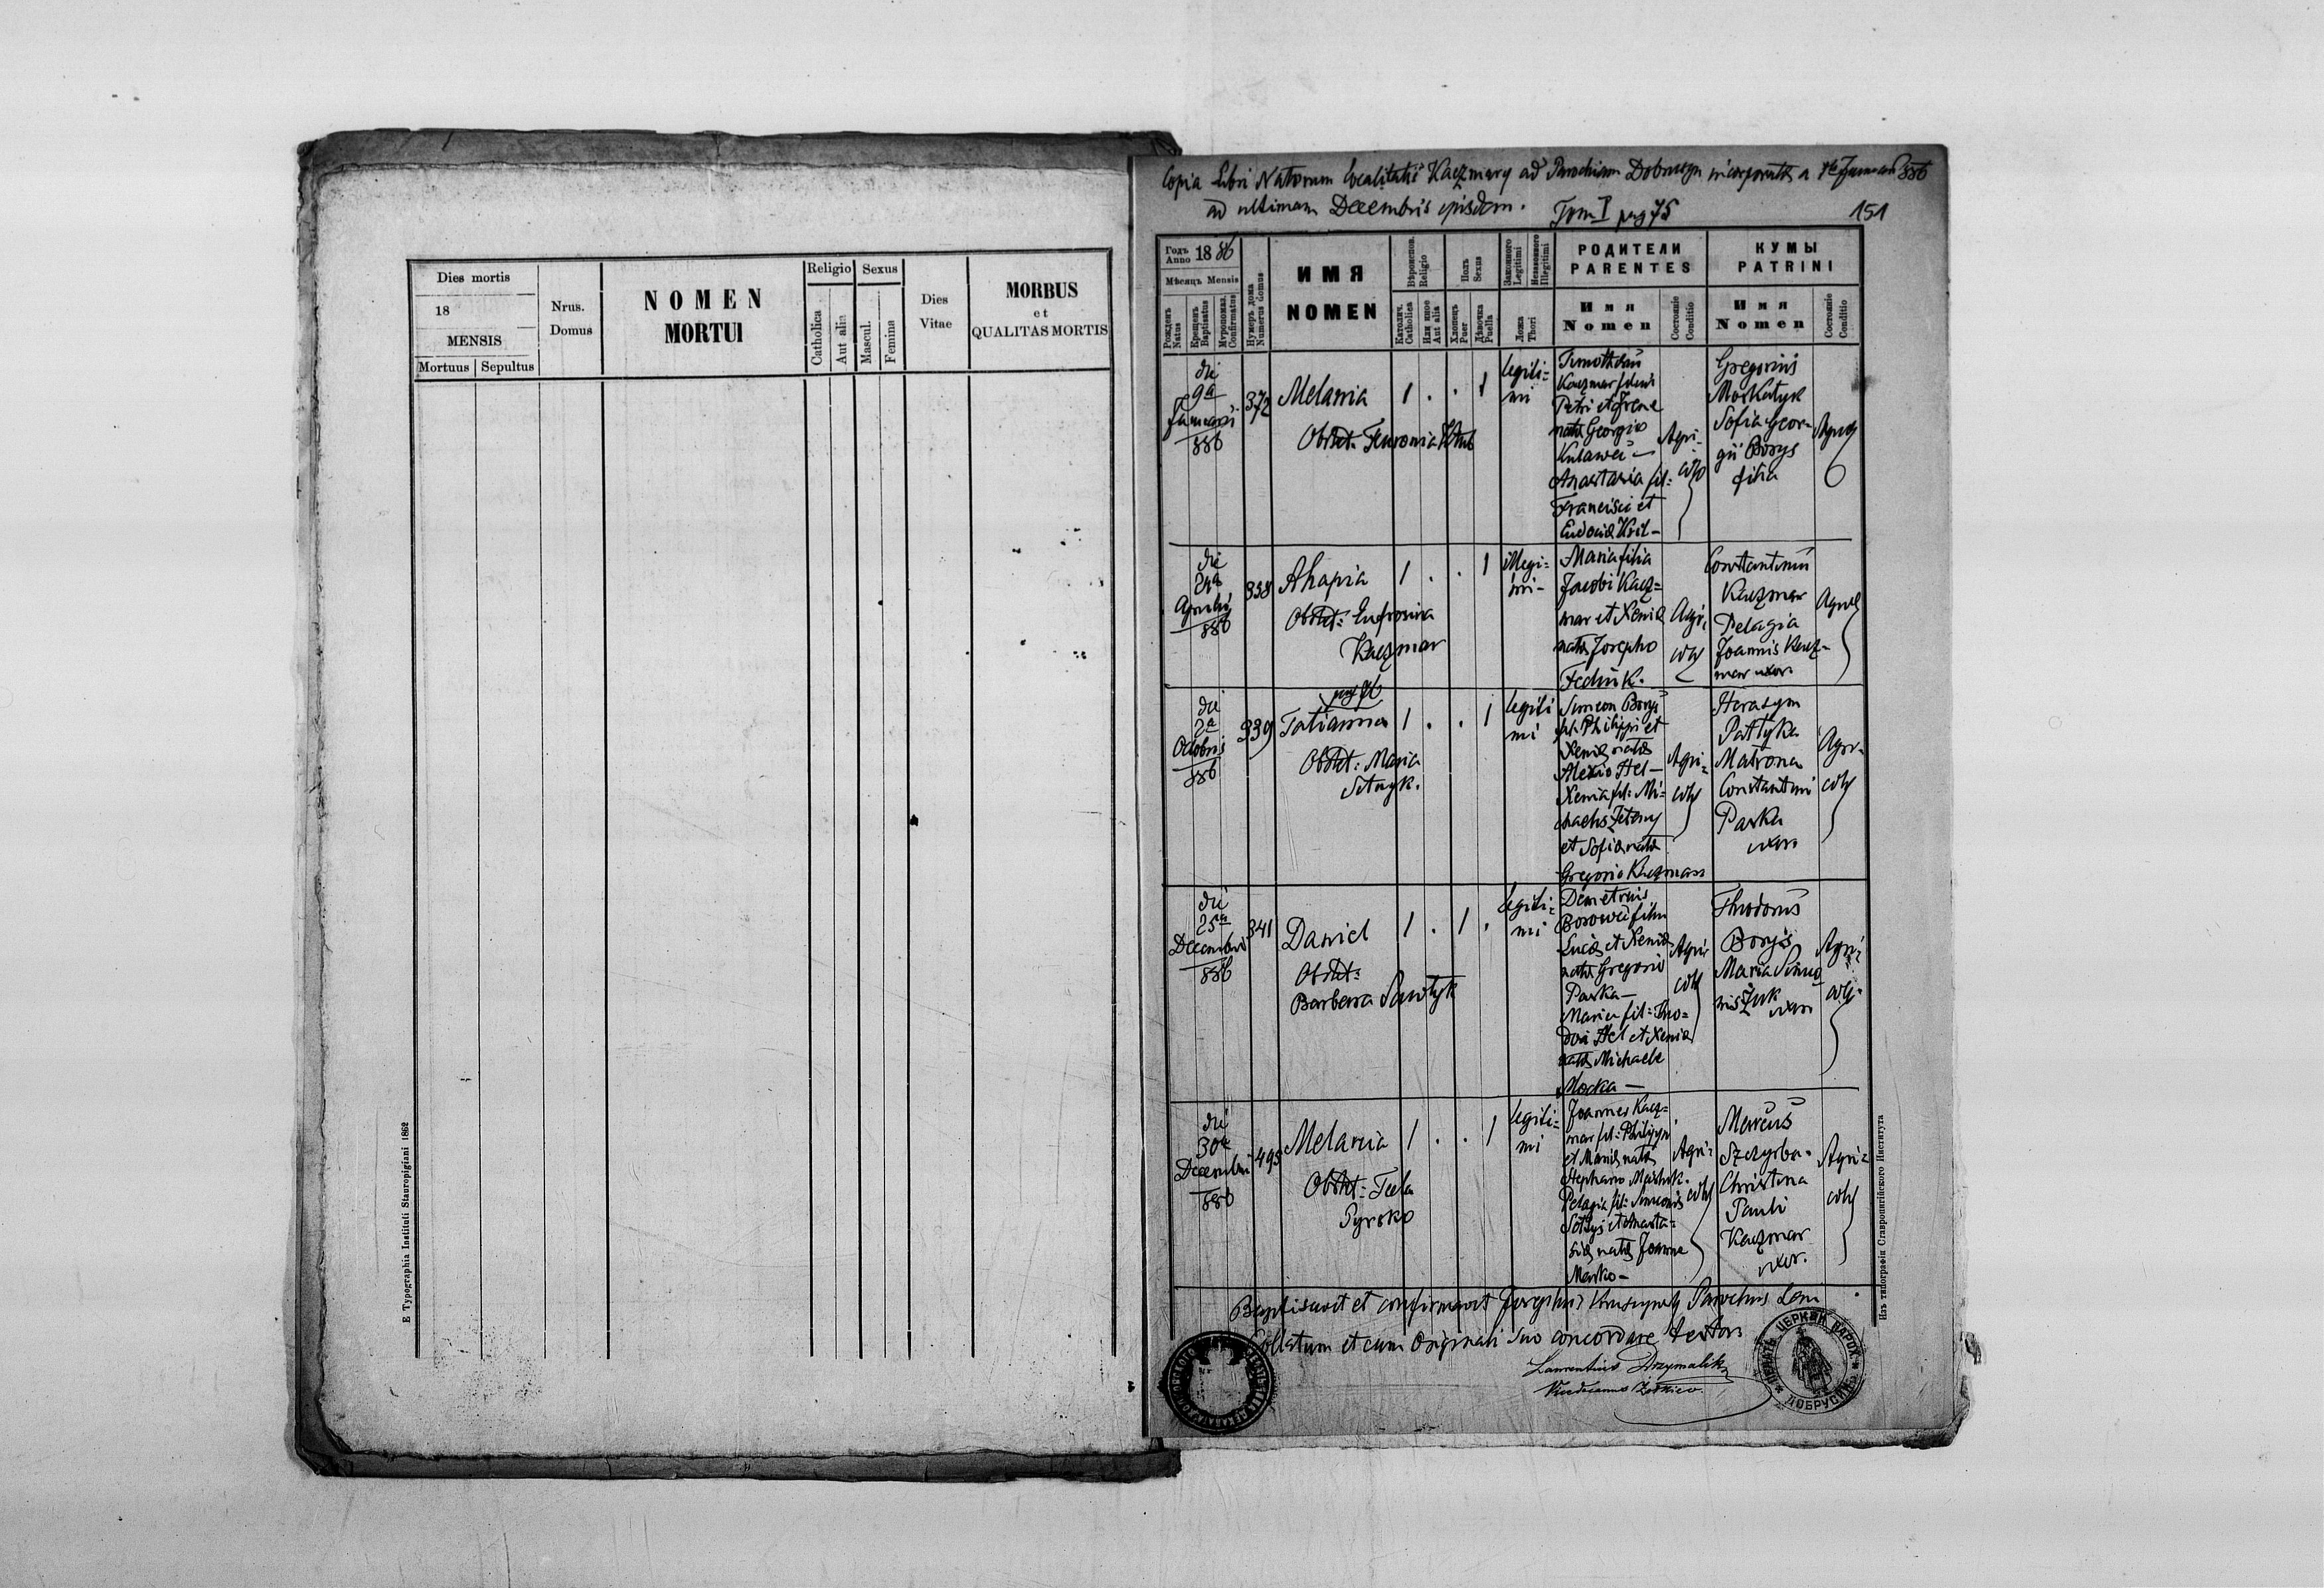 Dies mortis
18
MENSIS
Mortuus Sepultus
Nrus. Domus
NOMEN
MORTUI
Religio
Catholica
Aut alia
Sexus
Mascul.
Femina
Dies
Vitae
MORBUS
et
QUALITAS MORTIS
E Typographia Instituti Stauropigiani 1862
Copia Libri Natorum Localitatis Kaczmary ad Parochiam Dobrosyn incorporatae a Januarii 886
ad ultimam Decembris ejusdem. Tom I pag 75
151
Годъ Anno 1886
Мѣсяцъ Mensis
Рожденъ Natus
Крещенъ Baptisatus
Муропомаз. Confirmatus
Нумеръ дома Numerus domus
ИМЯ
NOMEN
Вѣроисповѣд. Religio
Католич. Catholica
Или иное Aut alia
Полъ Sexus
Хлопецъ Puer
Дѣвочка Puella
Законного Legitimi
Незаконного Illegitimi
Ложа Thori
РОДИТЕЛИ
PARENTES
Имя
Nomen
Состояніе
Conditio
КУМЫ
PATRINI
Имя
Nomen
Состояніе
Conditio
die
9a
Januarii
886
372
Melania
Obstet:
1 . . 1
legiti=
mi
Timotheus
Kaczmar filius
Petri et Irene
natae Georgio
Anastasia fil:
Francisci et
Eudociae
Agri-
colae
Gregorius
Moskalyk
Sofia Geor-
gii Borys
filia
die
Aprilis
886
338
Ahapia
Obstet: Eufrosina
Kaczmar
1 . . 1
illegi=
imi-
Maria filia
Jacobi Kacz=
mar et Xeniae
natae Josepho
Fedu K.
Agri,
colae
Constantinus
Kaczmar
Pelagia
Joannis Kacz-
mar uxor
pag 76
die
2a
Octobris
886
339
Tatianna
Obstet: Maria
1 . . 1
legiti
mi
Simeon Borys
fil: Philippi et
Xeniae natae
Alexio Hel-
Xenia fil: Mi=
chaelis
et Sofiae natae
Gregorio Kaczmar
Agri=
colae
Herasym
Pattyka
Matrona
Constantini
Paska
uxor
Agri-
colae
die
25ta
Decembris
886
341
Daniel
Obstet:
Barbara
1 . 1 .
legiti=
mi
Demetrius
filius
Lucae et Xeniae
natae Gregorio
Paska-
Maria fil: Theo-
dori Hel et Xeniae
natae Michaele
Mocka-
Agri
colae
Theodorus
Borys
Maria Simeo
nis Żuk uxor
Agri=
colae
die
30a
Decembris
886
495
Melania
Obstet: Tecla
Pyrsko
1 . . 1
legiti=
mi
Joannes Kacz=
mar fil: Philippi
et Mariae natae
Stephano
Pelagia fil: Simeonis
Sottys et Anasta=
siae natae Joanne
Marko-
Agri=
colae
Marcus
Szczyrba.
Christina
Pauli
Kaczmar
uxor.
Agri=
colae
Baptisavit et confirmavit Josephus Parochus Loci
Collatum et cum Originali suo concordare testor
Laurentius Drzymalik
ПЕЧАТЬ ЦЕРКВИ ПАРОХ. ДОБРУСИНЪ
Изъ типографіи Ставропигійского Института